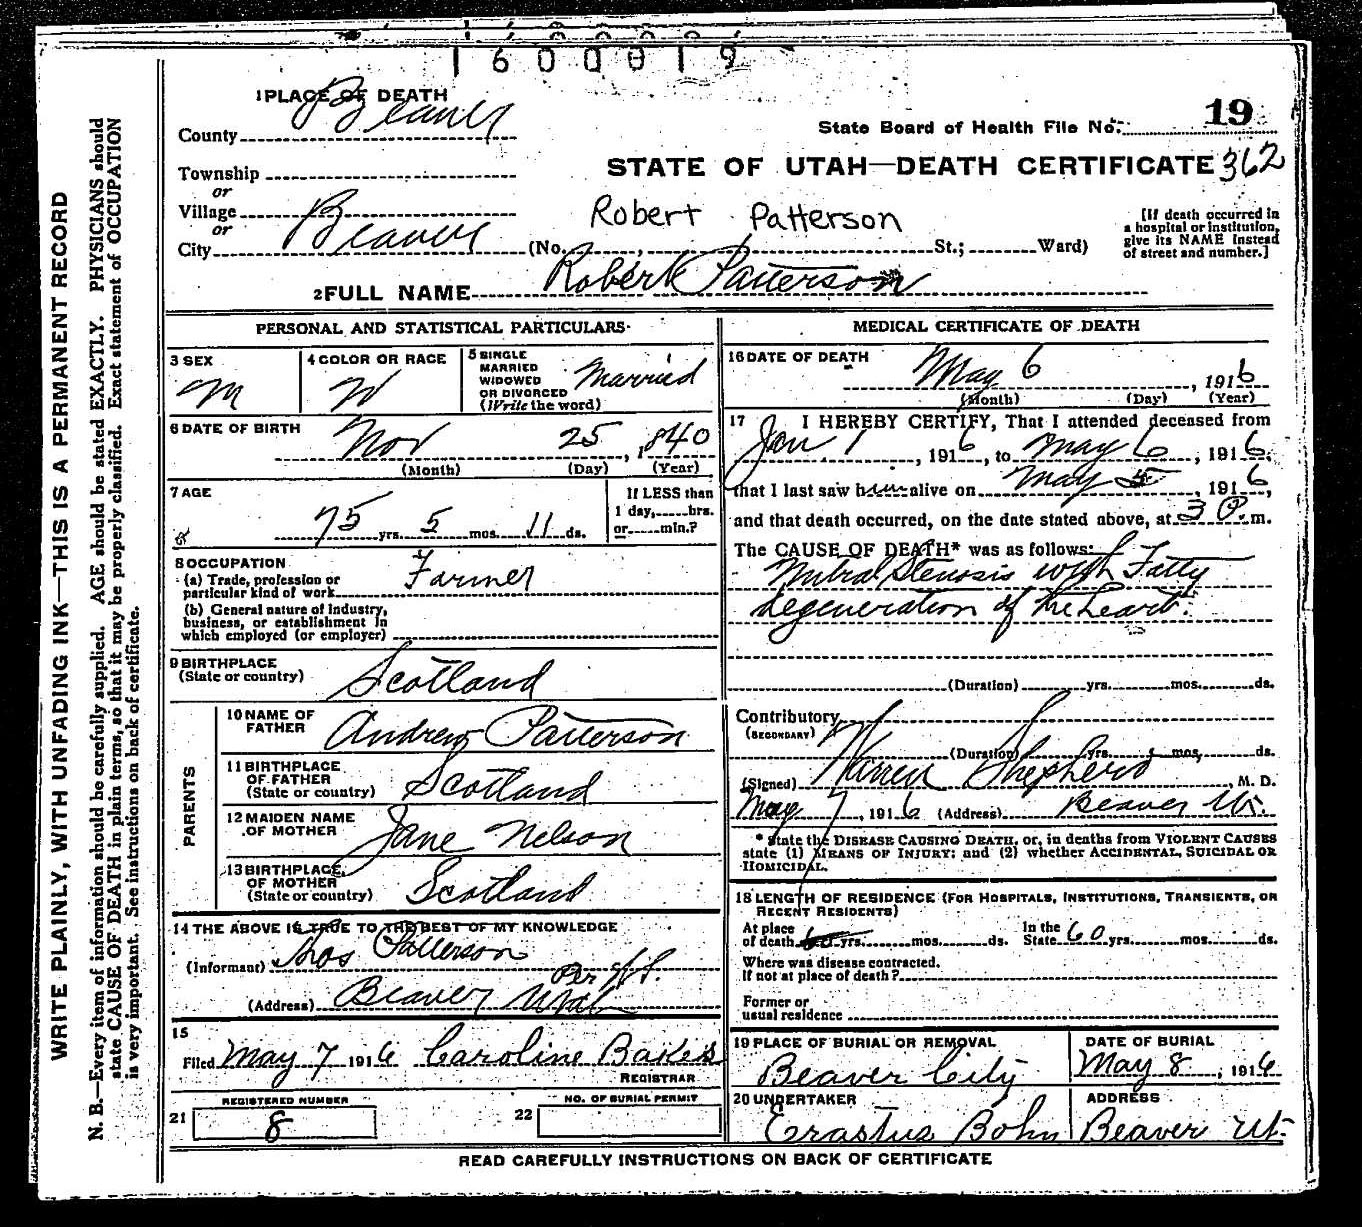 1600019
1 PLACE OF DEATH
County Beaver
State Board of Health File No. 19
Township
or
STATE OF UTAH—DEATH CERTIFICATE 362
Village
or
Robert Patterson
City Beaver (No. , St.; Ward)
[If death occurred in
a hospital or institution,
give its NAME instead
of street and number.]
2 FULL NAME Robert Patterson
PERSONAL AND STATISTICAL PARTICULARS
3 SEX
M
4 COLOR OR RACE
W
5 SINGLE
MARRIED
WIDOWED
OR DIVORCED
(Write the word)
Married
6 DATE OF BIRTH
Nov 25, 1840
(Month) (Day) (Year)
7 AGE
75 yrs. 5 mos. 11 ds.
If LESS than
1 day, hrs.
or min.?
8 OCCUPATION
(a) Trade, profession or
particular kind of work Farmer
(b) General nature of industry,
business, or establishment in
which employed (or employer)
9 BIRTHPLACE
(State or country) Scotland
PARENTS
10 NAME OF
FATHER Andrew Patterson
11 BIRTHPLACE
OF FATHER
(State or country) Scotland
12 MAIDEN NAME
OF MOTHER Jane Nelson
13 BIRTHPLACE
OF MOTHER
(State or country) Scotland
14 THE ABOVE IS TRUE TO THE BEST OF MY KNOWLEDGE
(Informant) Thos Patterson
Per
(Address) Beaver Utah
15
Filed May 7 1916 Caroline Bakes
REGISTRAR
21 REGISTERED NUMBER
8
22 NO. OF BURIAL PERMIT
MEDICAL CERTIFICATE OF DEATH
16 DATE OF DEATH
May 6, 1916
(Month) (Day) (Year)
17 I HEREBY CERTIFY, That I attended deceased from
Jan 1, 1916, to May 6, 1916,
that I last saw him alive on May 5, 1916,
and that death occurred, on the date stated above, at 3 P m.
The CAUSE OF DEATH* was as follows:
Mitral Stenosis with Fatty
degeneration of the heart.
(Duration) yrs. mos. ds.
Contributory
(SECONDARY)
(Duration) yrs. mos. ds.
(Signed) Warren Shepherd, M. D.
May 7, 1916 (Address) Beaver Ut.
* State the DISEASE CAUSING DEATH, or, in deaths from VIOLENT CAUSES
state (1) MEANS OF INJURY; and (2) whether ACCIDENTAL, SUICIDAL OR
HOMICIDAL.
18 LENGTH OF RESIDENCE (FOR HOSPITALS, INSTITUTIONS, TRANSIENTS, OR
RECENT RESIDENTS)
At place
of death yrs. mos. ds.
In the
State 60 yrs. mos. ds.
Where was disease contracted.
If not at place of death?
Former or
usual residence
19 PLACE OF BURIAL OR REMOVAL
Beaver City
DATE OF BURIAL
May 8, 1916
20 UNDERTAKER
Erastus Bohn
ADDRESS
Beaver Ut.
READ CAREFULLY INSTRUCTIONS ON BACK OF CERTIFICATE
WRITE PLAINLY, WITH UNFADING INK—THIS IS A PERMANENT RECORD
N. B.—Every item of information should be carefully supplied. AGE should be stated EXACTLY. PHYSICIANS should
state CAUSE OF DEATH in plain terms, so that it may be properly classified. Exact statement of OCCUPATION
is very important. See instructions on back of certificate.